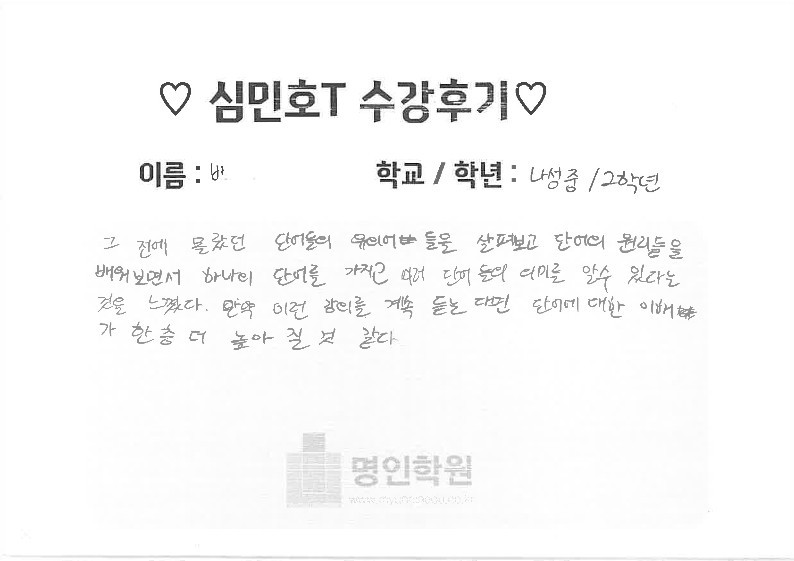 ♡ 심민호T 수강후기♡
이름 : 박
학교 / 학년 : 나성중 / 2학년
그 전에 몰랐던 단어들의 유의어들을 살펴보고 단어의 원리들을
배워보면서 하나의 단어를 가지고 여러 단어들의 의미를 알수 있다는
것을 느꼈다. 만약 이런 강의를 계속 듣는다면 단어에 대한 이해
가 한층 더 높아 질 것 같다
명인학원